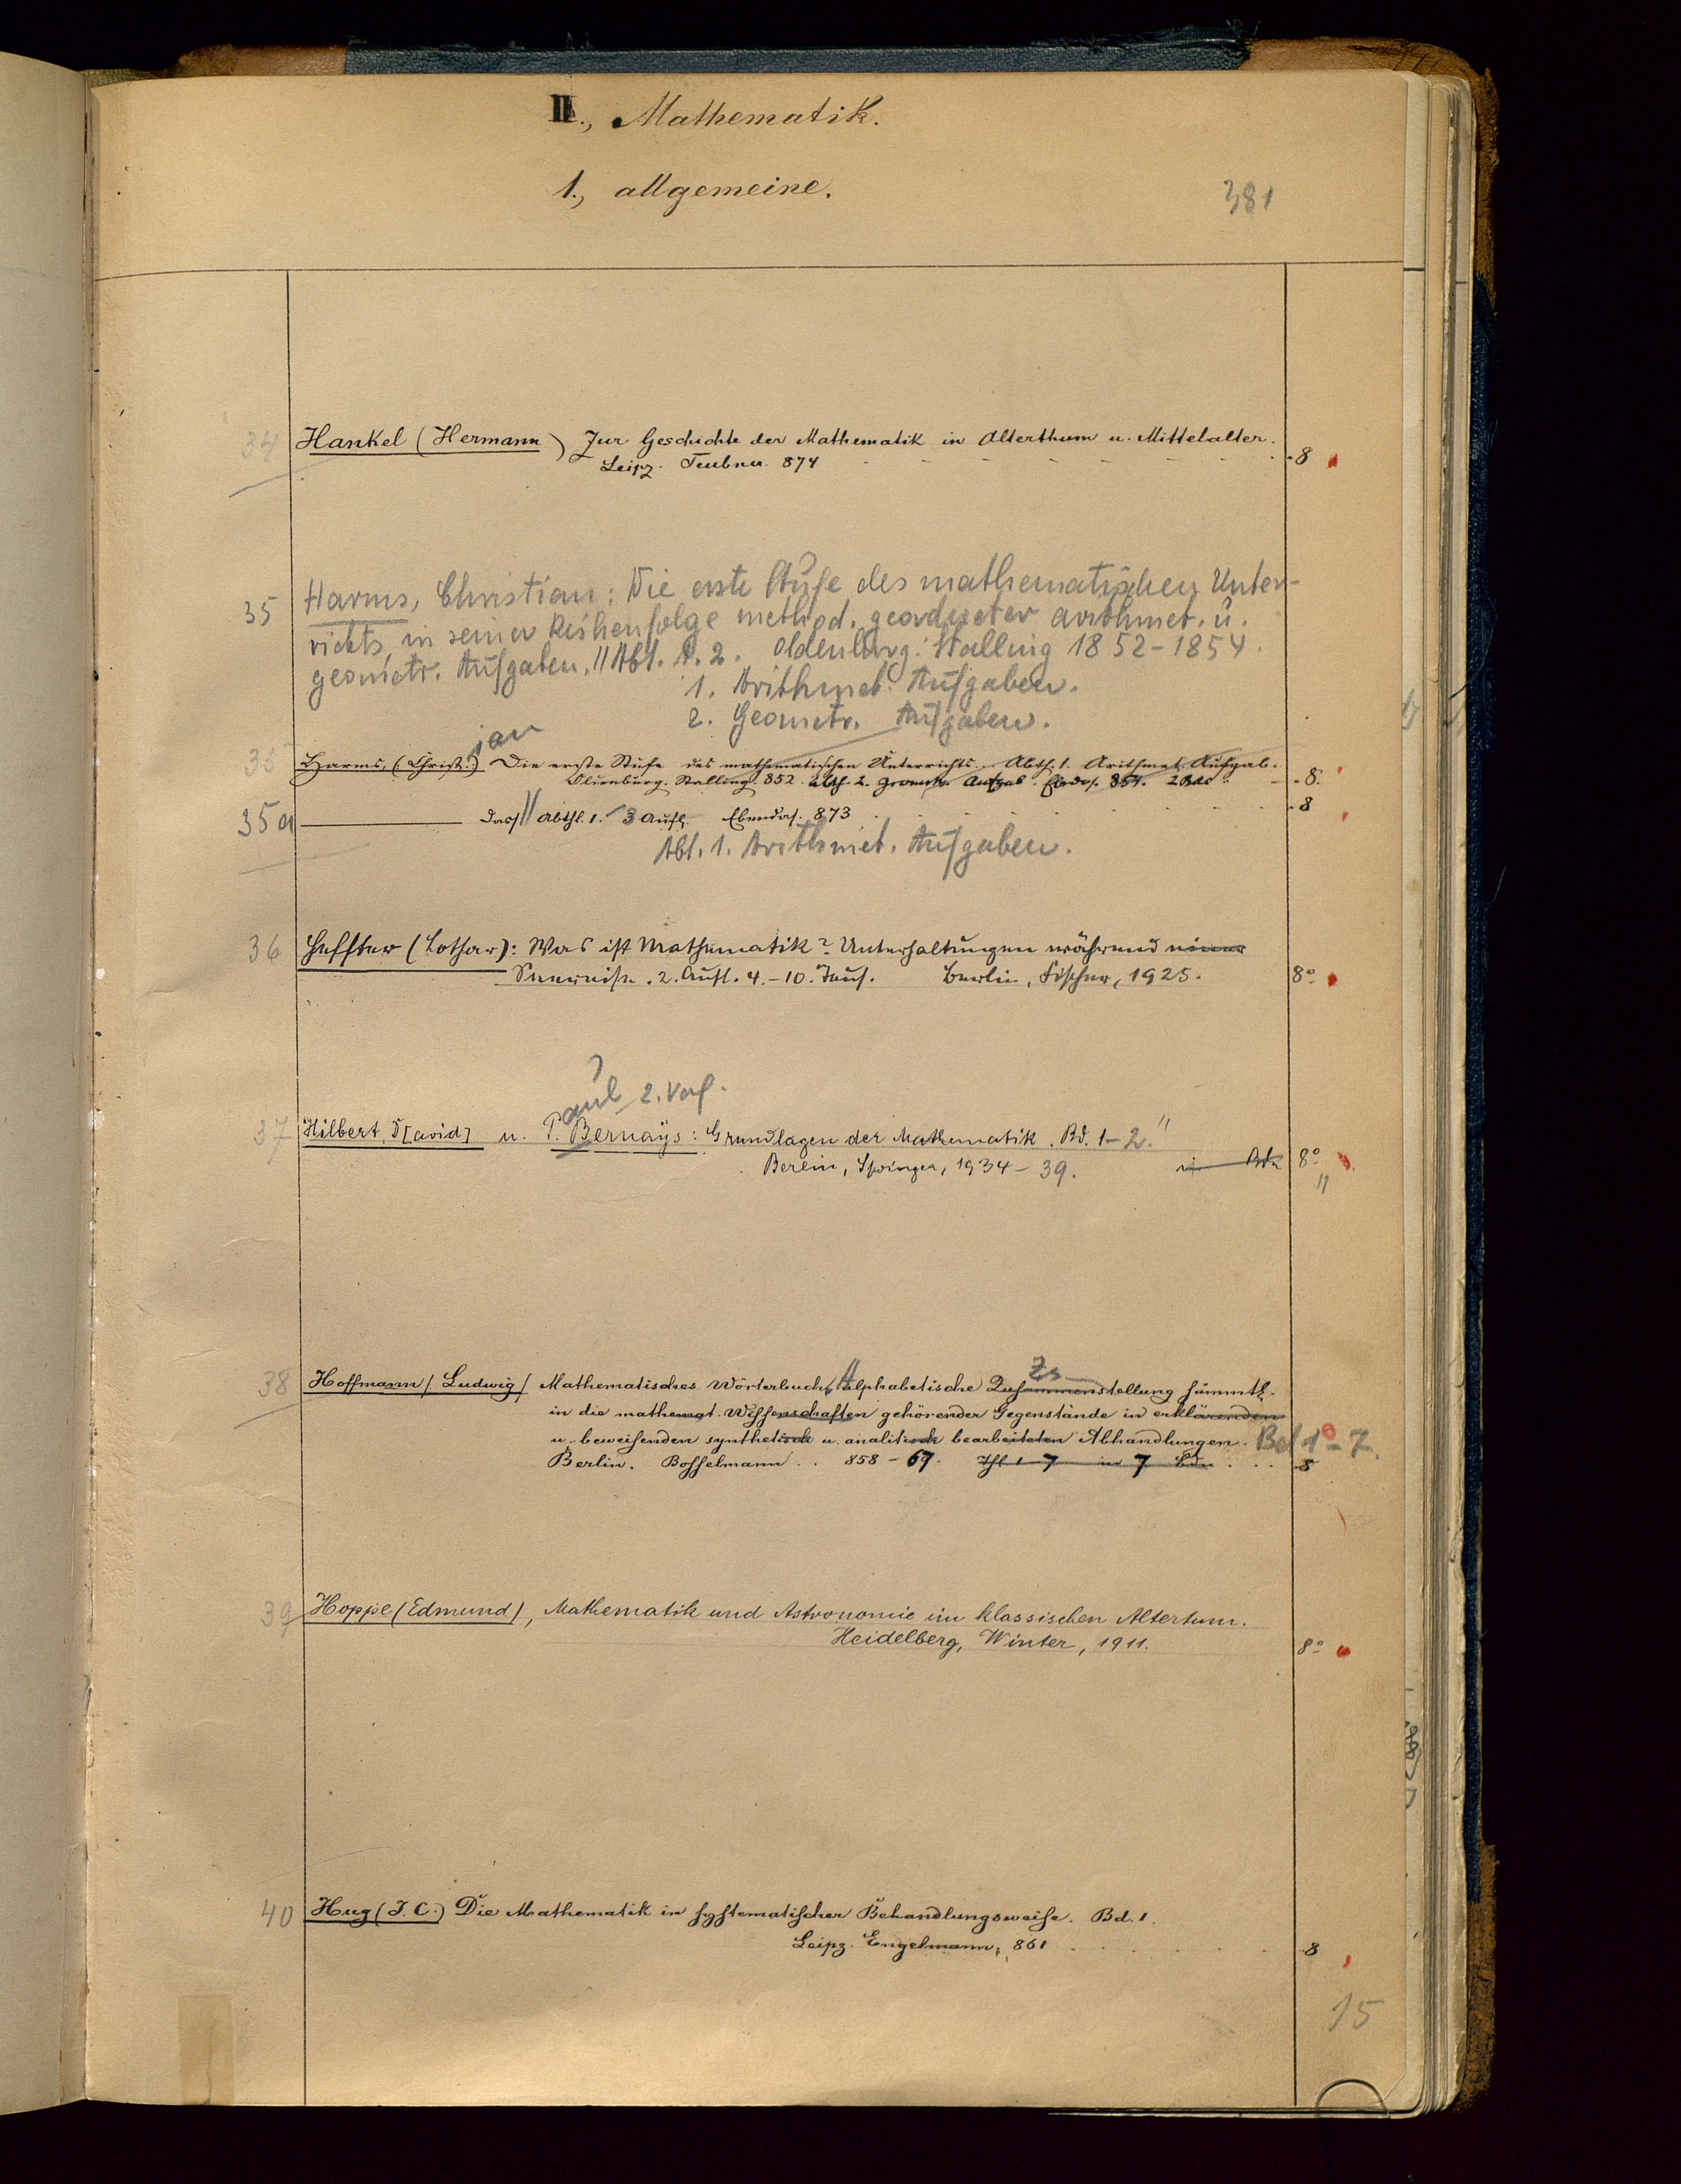 II., Mathematik.
1., allgemeine.
381
34 Hankel (Hermann) Zur Geschichte der Mathematik in Alterthum u. Mittelalter.
Leipz. Teubner. 874 8
35 Harms, Christian: Die erste Stufe des mathematischen Unter-
richts in seiner Reihenfolge method. geordneter arithmet. u.
geometr. Aufgaben. // Abt. 1. 2. Oldenburg: Stalling 1852-1854.
1. Arithmet. Aufgaben.
2. Geometr. Aufgaben.
ian
35 Harms, (Christ.) Die erste Stufe des mathematischen Unterrichts. Abth. 1. Arithmet. Aufgab.
Oldenburg. Stalling. 852. Abth. 2. Geometr. Aufgab. Ebdas. 854. 2 Bde 8.
35a dass // Abthl. 1. 3 Aufl. Ebendas. 873 8
Abt. 1. Arithmet. Aufgaben.
36 Heffter (Lothar): Was ist Mathematik? Unterhaltungen während einer
Seereise. 2. Aufl. 4.-10. Taus. Berlin, Fischer, 1925. 8°
aul 2. Verf.
37 Hilbert, D[avid] u. P. Bernays: Grundlagen der Mathematik. Bd. 1-2. "
Berlin, Springer, 1934-39. in Bdn 8°
"
Zs
38 Hoffmann (Ludwig) Mathematisches Wörterbuch, // alphabetische Zusammenstellung sämmtl.
in die mathemat. Wissenschaften gehörender Gegenstände in erklärenden
u. beweisenden synthetisch u. analitisch bearbeiteten Abhandlungen. Bd 1-7.
Berlin. Bosselmann. 858-67. Thl 1-7 in 7 Bdn 8
39 Hoppe (Edmund), Mathematik und Astronomie im klassischen Altertum.
Heidelberg, Winter, 1911. 8°
40 Hug (J. C.) Die Mathematik in systematischer Behandlungsweise. Bd. 1.
Leipz. Engelmann, 861 8
15